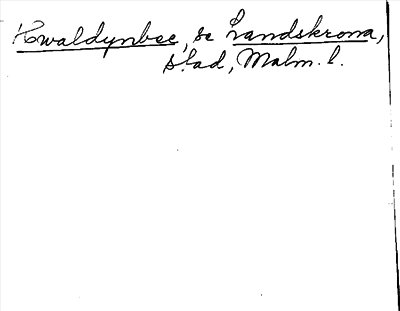 Kwaldynbee, se Landskrona,
stad, Malm. l.